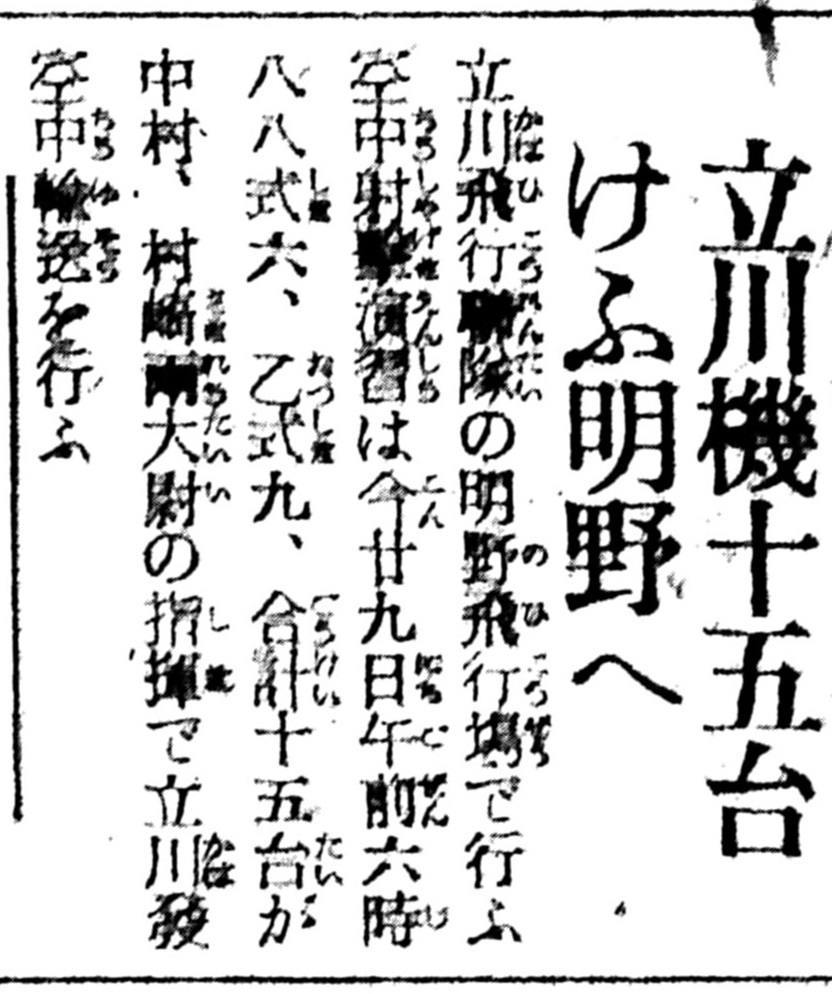 立川機十五台
けふ明野へ
立川飛行聯隊の明野飛行場で行ふ
空中射撃演習は今廿九日午前六時
八八式六、乙式九、合計十五台が
中村、村崎両大尉の指揮で立川發
空中輸送を行ふ